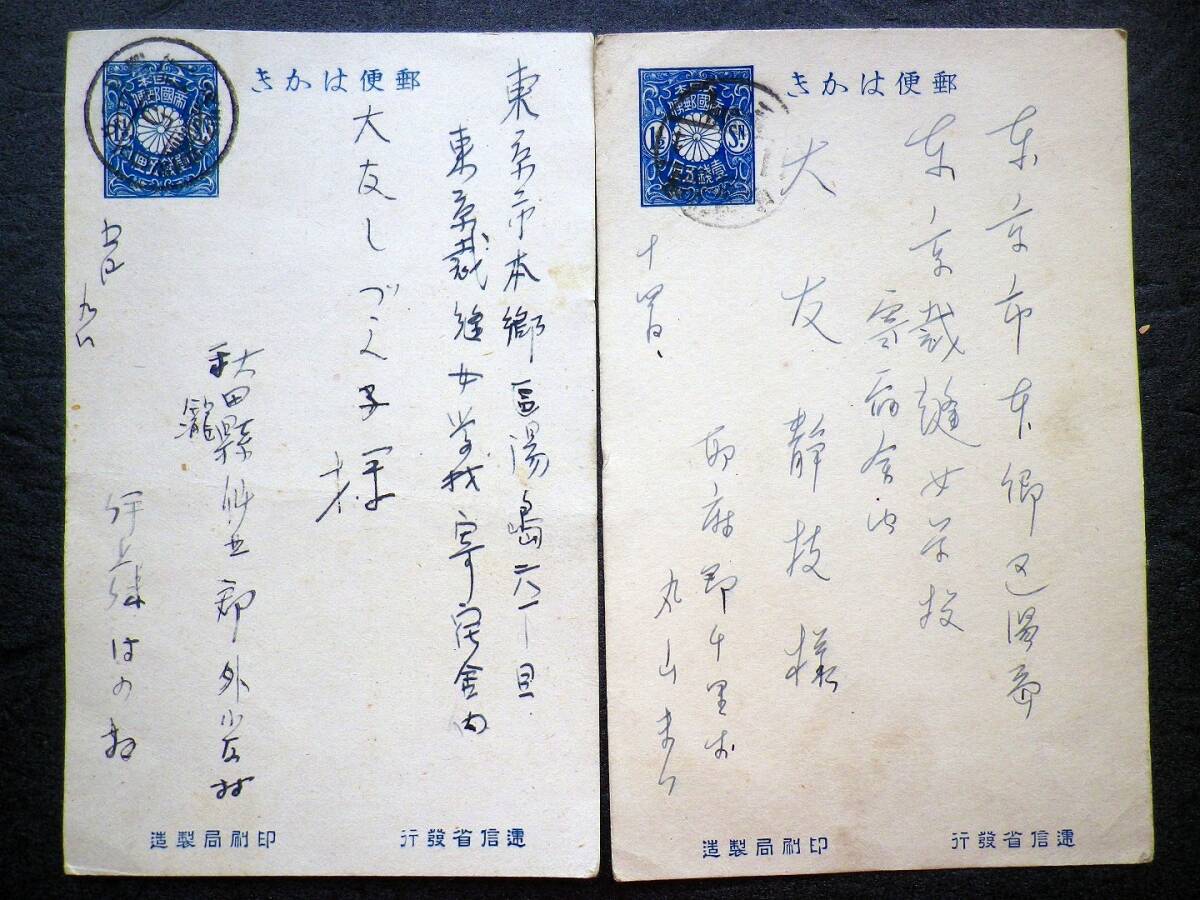 郵便はかき
帝國郵便
壹銭五厘
東京市本郷區湯島六丁目
東京裁縫女学校寄宿舎内
大友しづえ子様
秋田縣仙北郡外小友村
印刷局製造
逓信省發行
郵便はかき
帝國郵便
1½
Sn.
壹銭五厘
東京市本郷区湯島
東京裁縫女学校
寄宿舎内
大友静枝様
十四日、
千里村
丸山
印刷局製造
逓信省發行